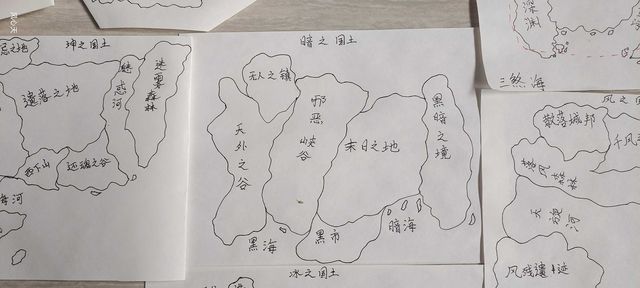 坤之国土
遗落之地
迷惑河
迷雾森林
还魂之谷
暗之国土
无人之镇
天外之谷
邪恶峡谷
末日之地
黑暗之境
黑海
黑市
暗海
冰之国土
深渊
三煞海
风之国
散落城邦
千风
暮风森林
天堤河
风残遗迹